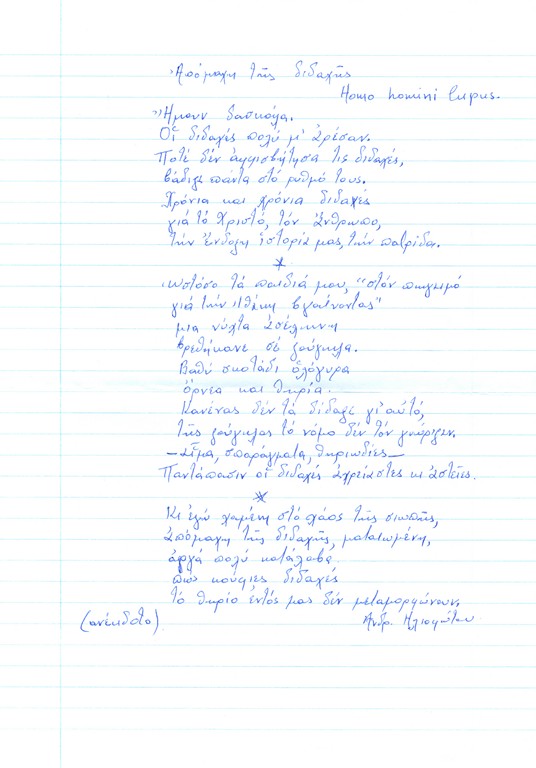 Ἀπόμαχη τῆς διδαχῆς
Homo homini lupus.
Ἤμουν δασκάλα.
Οἱ διδαχές πολύ μ' ἄρεσαν.
Ποτέ δέν ἀμφισβήτησα τίς διδαχές,
βάδιζε πάντα στό ρυθμό τους.
Χρόνια καί χρόνια διδαχές
γιά τό Χριστό, τόν ἄνθρωπο,
τήν ἔνδοξη ἱστορία μας, τήν πατρίδα.
*
Ὡστόσο τά παιδιά μου, "στόν πηγαιμό
γιά τήν Ἰθάκη βγαίνοντας"
μια νύχτα ἀσέληνη
βρεθήκανε σέ ζούγκλα.
Βαθύ σκοτάδι ὁλόγυρα
ὄρνεα καί θηρία.
Κανένας δέν τά δίδαξε γι' αὐτό,
τῆς ζούγκλας τό νόμο δέν τόν γνώριζαν.
—Αἷμα, σπαράγματα, θηριωδίες—
Παντάπασιν οἱ διδαχές ἀχρείαστες κι ἀστεῖες.
*
Κι ἐγώ χαμένη στό χάος τῆς σιωπῆς,
ἀπόμαχη τῆς διδαχῆς, ματαιωμένη,
ἀργά πολύ κατάλαβα
πώς κούφιες διδαχές
τό θηρίο ἐντός μας δέν μεταμορφώνουν.
(ανέκδοτο) Ἀνδρ. Ηλιοφώτου